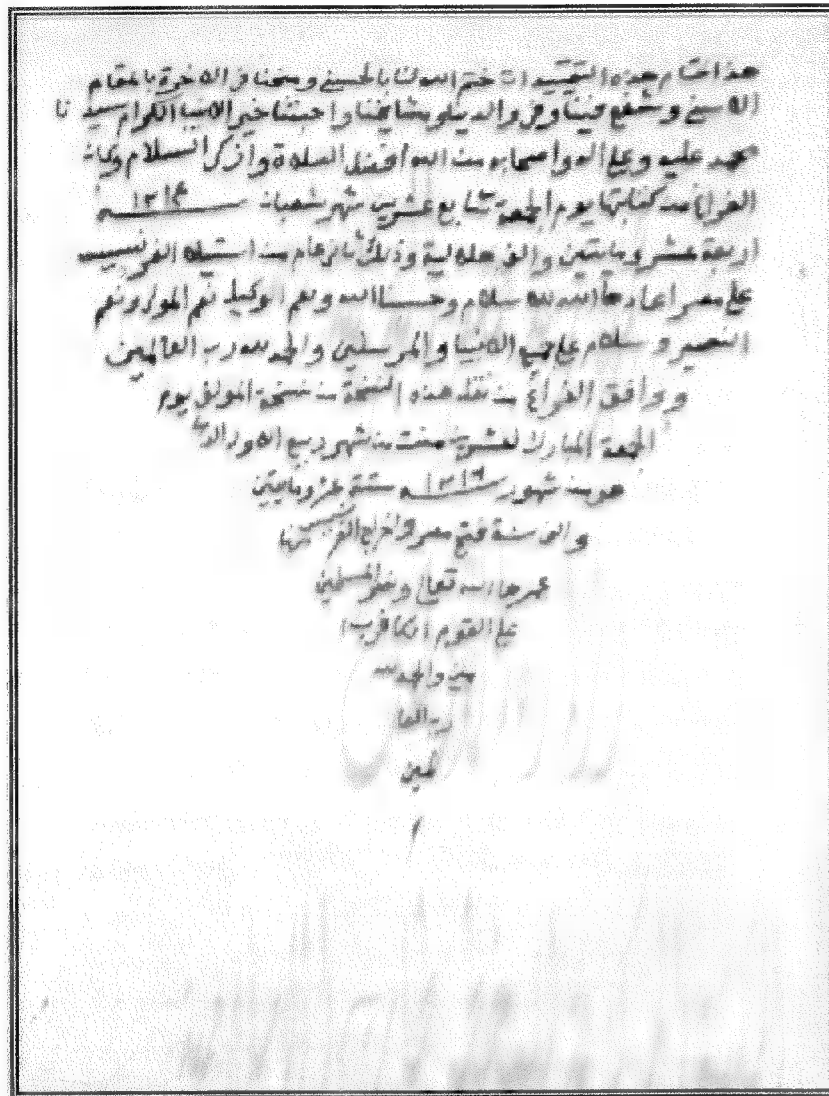 هذا ختام هذه التقييدات ختم الله لنا بالحسنى ومنحنا فى الاخرة بالمقام
الاسنى وشفع فينا وفى والدينا ومشايخنا واحبتنا خير الانبيا الكرام سيدنا
محمد عليه وعلى اله واصحابه من الله افضل الصلاة وازكى السلام وكان
الفراغ من كتابتها يوم الجمعة سابع عشرين شهر شعبان سنة ١٢١٤
اربعة عشر ومايتين والف هلالية وذلك ثانى عام من استيلا الفرنسيس
على مصر اعادها الله للاسلام وحسبنا الله ونعم الوكيل نعم المولى ونعم
النصير وسلام على جميع الانبيا والمرسلين والحمد لله رب العالمين
ووافق الفراغ من نقل هذه النسخة من نسخة المولف يوم
الجمعة المبارك لعشرين مضت من شهر ربيع الاول الذى
هو من شهور سنة ١٢١٦ ستة عشر ومايتين
والف سنة فتح مصر واخراج الفرنسيس منها
عمرها الله تعالى ونصر المسلمين
على القوم الكافرين ا
مين والحمد لله
رب العا
لمين